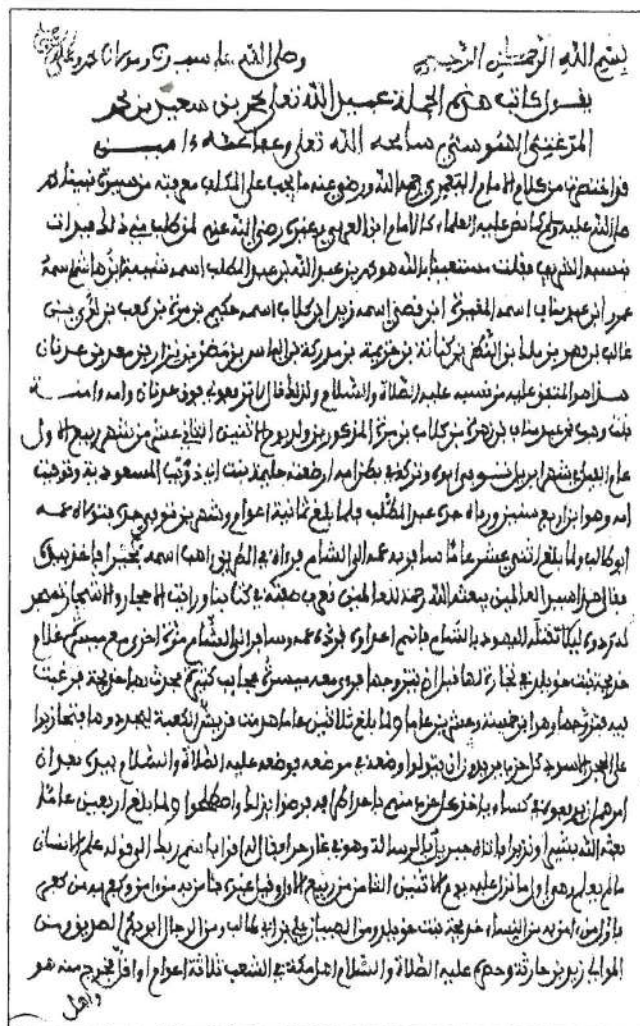 بسم الله الرحمن الرحيم وصلى الله على سيدنا ومولانا محمد وعلى
يقول كاتب هذه الجملة عبيد الله تعلى محمد بن سعيد بن محمد
المرغيتي السوسي سامحه الله تعلى وعفا عنه ءامين
من كلام الامام رحمه الله ورضي عنه ما يجب على المكلف معرفته من سيرة نبينا محمد
صلى الله عليه وسلم كما نص عليه العلماء كالامام ابن العربي وغيره رضي الله عنهم في ذلك
بنسبه الشريف فقلت مستعينا بالله هو محمد بن عبد الله بن عبد المطلب اسمه شيبة ابن هاشم اسمه
عمرو ابن عبد مناف اسمه المغيرة ابن قصي اسمه زيد ابن كلاب اسمه حكيم بن مرة بن كعب بن لؤي بن
غالب بن فهر بن ملك بن النضر بن كنانة بن خزيمة بن مدركة بن الياس بن مضر بن نزار بن معد بن عدنان
هذا هو المتفق عليه من نسبه عليه الصلاة والسلام ولذلك قال لا ترفعوني فوق عدنان وامه ءامنة
بنت وهب بن عبد مناف بن زهرة بن كلاب بن مرة المذكور ولد يوم الاثنين الثاني عشر من شهر ربيع الاول
عام الفيل في شهر ابريل وتركه في بطن امه ارضعته حليمة بنت ابي ذؤيب السعودية وتوفيت
امه وهو ابن اربع سنين ورباه جده عبد المطلب فلما بلغ ثمانية اعوام وشهرين توفي جده فتولاه عمه
ابو طالب ولما بلغ اثنتي عشر عاما سافر به عمه الى الشام فرءاه في الطريق راهب اسمه بحيرا فاخذ بيده
فقال هذا سيد العالمين يبعثه الله رحمة للعالمين نعرف صفته في كتابنا ورايت الاحجار والاشجار تسجد
له ليلا تقتله اليهود بالشام فانهم اعداؤه فرده عمه وسافر الى الشام مرة اخرى مع ميسرة غلام
خديجة بنت خويلد في تجارة لها قبل ان يتزوجها فرءى معه ميسرة عجايب كثيرة فحدث بها خديجة فرغبت
فيه فتزوجها وهو ابن خمسة وعشرين عاما ولما بلغ ثلاثين عاما هدمت قريش الكعبة ليجددوها فتنازعوا
على الحجر الاسود كل حزب يريدون ان يتولوا وضعه في موضعه فوضعه عليه الصلاة والسلام بيده بعد ان
امرهم ان يرفعوه في كساء ياخذ كل حزب منهم فرضوا بذلك واصطلحوا ولما بلغ اربعين عاما
بعثه الله بشيرا ونذيرا فاتاه جبريل بالرسالة وهو في غار حراء فقال له اقرا باسم ربك الى قوله علم الانسان
ما لم يعلم وهو اول ما نزل عليه يوم الاثنين الثامن من ربيع الاول وقيل غيره فئامن به من ءامن وكفر به من كفر
فاول من ءامن به من النساء خديجة بنت خويلد ومن الصبيان علي بن ابي طالب ومن الرجال ابو بكر الصديق ومن
الموالي زيد بن حارثة وحصره عليه الصلاة والسلام اهل مكة في الشعب ثلاثة اعوام او اقل فخرج منه هو
واهل